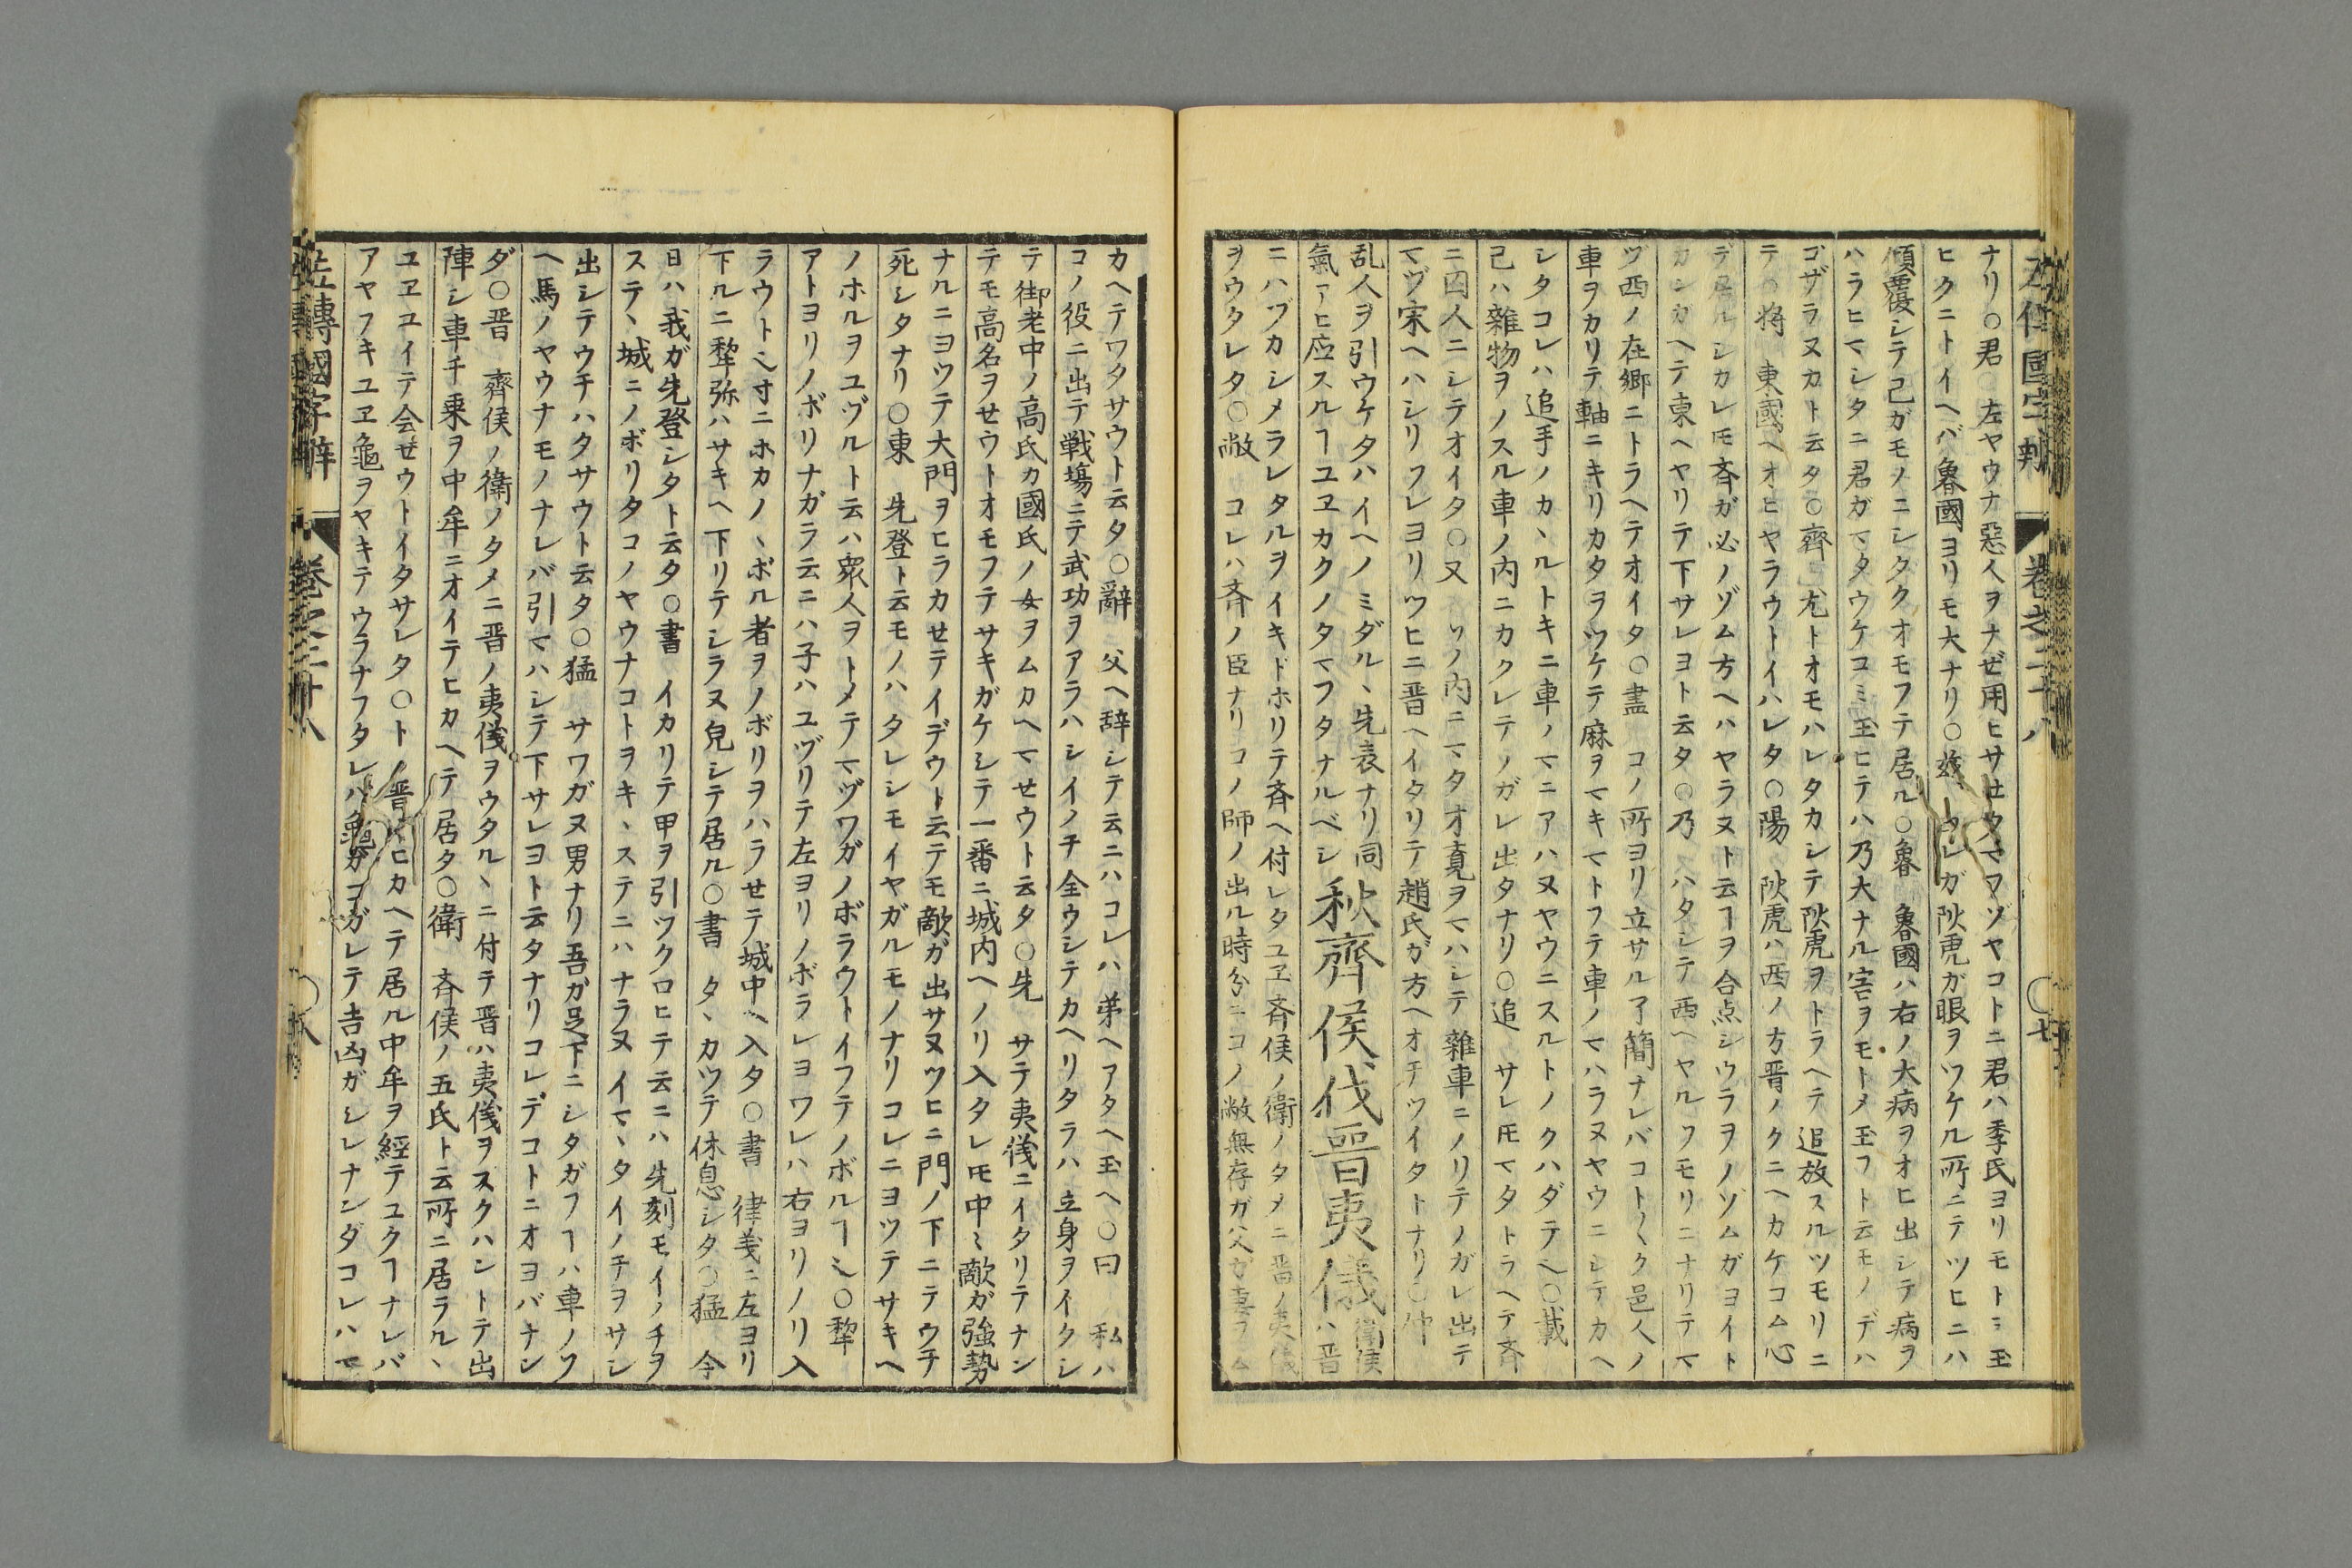 左傳國字辨 卷之二十八 〇七
ナリ〇君 左ヤウナ惡人ヲナゼ用ヒサせタマワゾヤコトニ君ハ季氏ヨリモトミ玉
ヒクニトイヘバ魯國ヨリモ大ナリ〇茲 カレガ陽虎ガ眼ヲツケル所ニテツヒニハ
傾覆シテ己ガモノニシタクオモフテ居ル〇魯 魯國ハ右ノ大病ヲオヒ出シテ病ヲ
ハラヒマシタニ君ガマタウケコミ玉ヒテハ乃大ナル害ヲモトメ玉フト云モノデハ
ゴザラヌカト云タ〇齊 尤トオモハレタカシテ陽虎ヲトラヘテ追放スルツモリニ
テ〇将 東國ヘオヒヤラウトイハレタ〇陽 陽虎ハ西ノ方晋ノクニヘカケコム心
デ居ルシカレ𪜈斉ガ必ノゾム方ヘハヤラヌト云ヿヲ合点シウラヲノゾムガヨイト
カンガヘテ東ヘヤリテ下サレヨト云タ〇乃 ハタシテ西ヘヤルツモリニナリテマ
ヅ西ノ在郷ニトラヘテオイタ〇盡 コノ所ヨリ立サル了簡ナレバコト〱ク邑人ノ
車ヲカリテ軸ニキリカタヲツケテ麻ヲマキマトフテ車ノマハラヌヤウニシテカヘ
シタコレハ追手ノカヽルトキニ車ノマニアハヌヤウニスルトノクハダテ也〇載
己ハ雜物ヲノスル車ノ内ニカクレテノガレ出タナリ〇追 サレ𪜈マタトラヘテ斉
ニ囚人ニシテオイタ〇又 ソノ内ニマタオ意ヲマハシテ雜車ニノリテノガレ出テ
マヅ宋ヘハシリフレヨリツヒニ晋ヘイタリテ趙氏ガ方ヘオチツイタトナリ〇仲
乱人ヲ引ウケタハイヘノミダルヽ先表ナリ同
氣アヒ应スルヿユヱカクノタマフタナルベシ 秋齊侯伐晋夷儀 衛侯
ハ晋
ニハヅカシメラレタルヲイキドホリテ斉ヘ付レタユヱ斉侯ノ衛ノタメニ晋ノ夷儀
ヲウタレタ〇敝 コレハ斉ノ臣ナリコノ師ノ出ル時分ニコノ敝無存ガ父ガ妻ヲム
カヘテワタサウト云タ〇辭 父ヘ辞シテ云ニハコレハ弟ヘアタヘ玉ヘ〇曰 私ハ
コノ役ニ出テ戦場ニテ武功ヲアラハシイノチ全ウシテカヘリタラハ立身ヲイタシ
テ御老中ノ高氏カ國氏ノ女ヲムカヘマせウト云タ〇先 サテ夷儀ニイタリテナン
テモ高名ヲせウトオモフテサキガケシテ一番ニ城内ヘノリ入タレ𪜈中〻敵ガ強勢
ナルニヨツテ大門ヲヒラカせテイデウト云テモ敵ガ出サヌツヒニ門ノ下ニテウチ
死シタナリ〇東 先登ト云モノハタレシモイヤガルモノナリコレニヨツテサキヘ
ノホルヲユヅルト云ハ衆人ヲトメテマヅワガノボラウトイフテノボルヿ也〇犂
アトヨリノボリナガラ云ニハ子ハユヅリテ左ヨリノボラレヨワレハ右ヨリノリ入
ラウト也寸ニホカノヽボル者ヲノボリヲハラせテ城中ヘ入タ〇書 律義ニ左ヨリ
下ルニ犂弥ハサキヘ下リテシラヌ皃シテ居ル〇書 タヽカツテ休息シタ〇猛 今
日ハ我ガ先登シタト云タ〇書 イカリテ甲ヲ引ツクロヒテ云ニハ先刻モイノチヲ
ステヽ城ニノボリタコノヤウナコトヲキヽステニハナラヌイマヽタイノチヲサシ
出シテウチハタサウト云タ〇猛 サワガヌ男ナリ吾ガ足下ニシタガフヿハ車ノソ
ヘ馬ノヤウナモノナレバ引マハシテ下サレヨト云タナリコレデコトニオヨバナン
ダ〇晋 齊侯ノ衛ノタメニ晋ノ夷儀ヲウタルヽニ付テ晋ハ夷儀ヲスクハントテ出
陣シ車千乘ヲ中牟ニオイテヒカヘテ居タ〇衛 斉侯ノ五氏ト云所ニ居ラルヽ
ユヱユイテ会せウトイタサレタ〇ト 晋ノヒカヘテ居ル中牟ヲ經テユクヿナレバ
アヤフキユヱ龜ヲヤキテウラナフタレハ龜ガコガレテ吉凶ガシレナンダコレハマ
左傳國字辨 卷之二十八 〇八